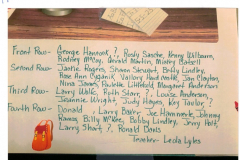 Front Row- George Hancock, ?, Rosly Sanche, Kenny Wilbourn,
Rodney McCoy, Donald Martin, Mickey Catsill
Second Row- Jackie Rogers, Shawn Stewart, Betty Lindley,
Rose Ann Cyganik, Vallory Hardcastle, Jan Clayton,
Nina Jones, Paulette Littlefield, Margaret Anderson
Third Row- Larry Walls, Ruth Starr, ?, Louise Anderson,
Jeannie Wright, Judy Hayes, Kay Taylor, ?
Fourth Row- Donald, Larry Baker, Joe Hammerle, Johnny
Ramsey, Billy McKee, Bobby Lindley, Jerry Pott,
Larry Short, ?, Ronald Davis
Teacher- Leola Lyles